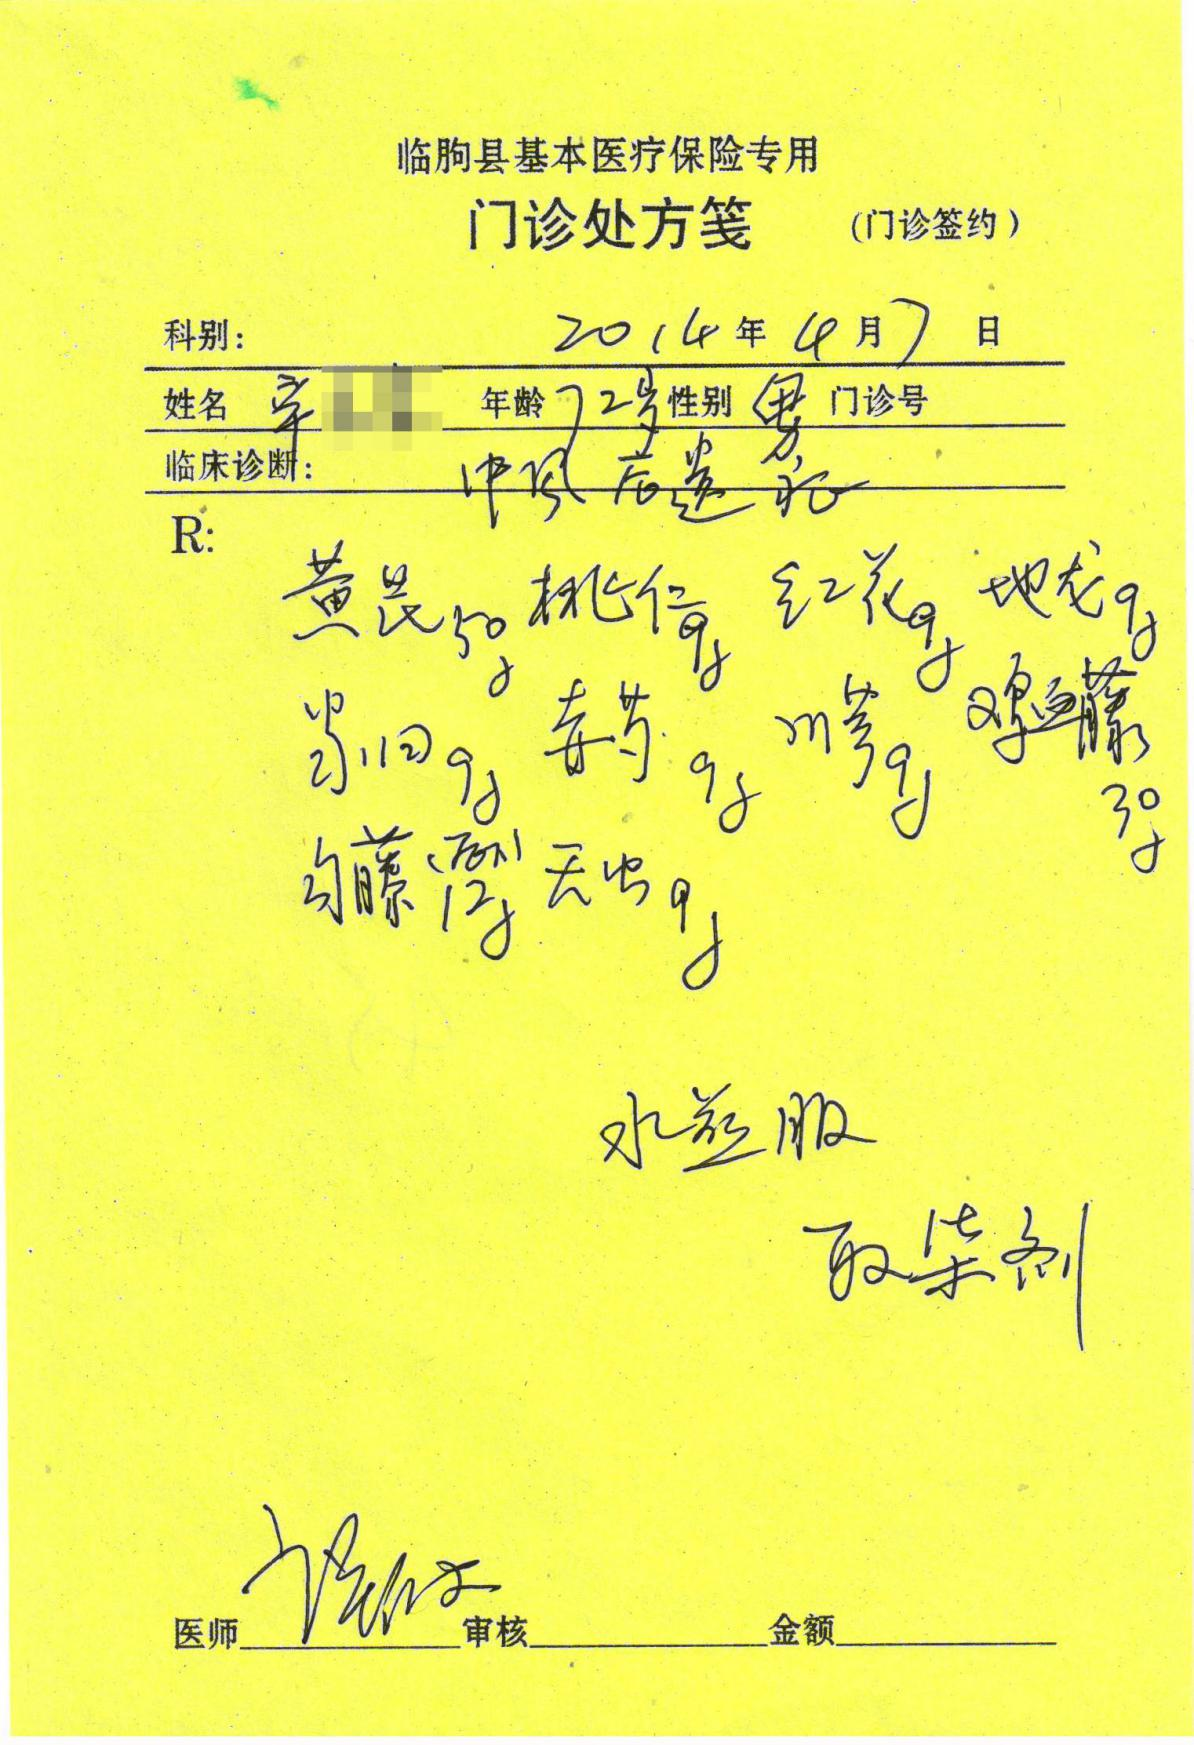 临朐县基本医疗保险专用
门诊处方笺 (门诊签约)
科别: 2014年4月7日
姓名 辛 年龄 72岁 性别 男 门诊号
临床诊断: 中风后遗症
R:
黄芪50g 桃仁9g 红花9g 地龙9g
当归9g 赤芍9g 川芎9g 鸡血藤30g
勾藤(后下)12g 天虫9g
水煎服
取柒剂
医师 审核 金额